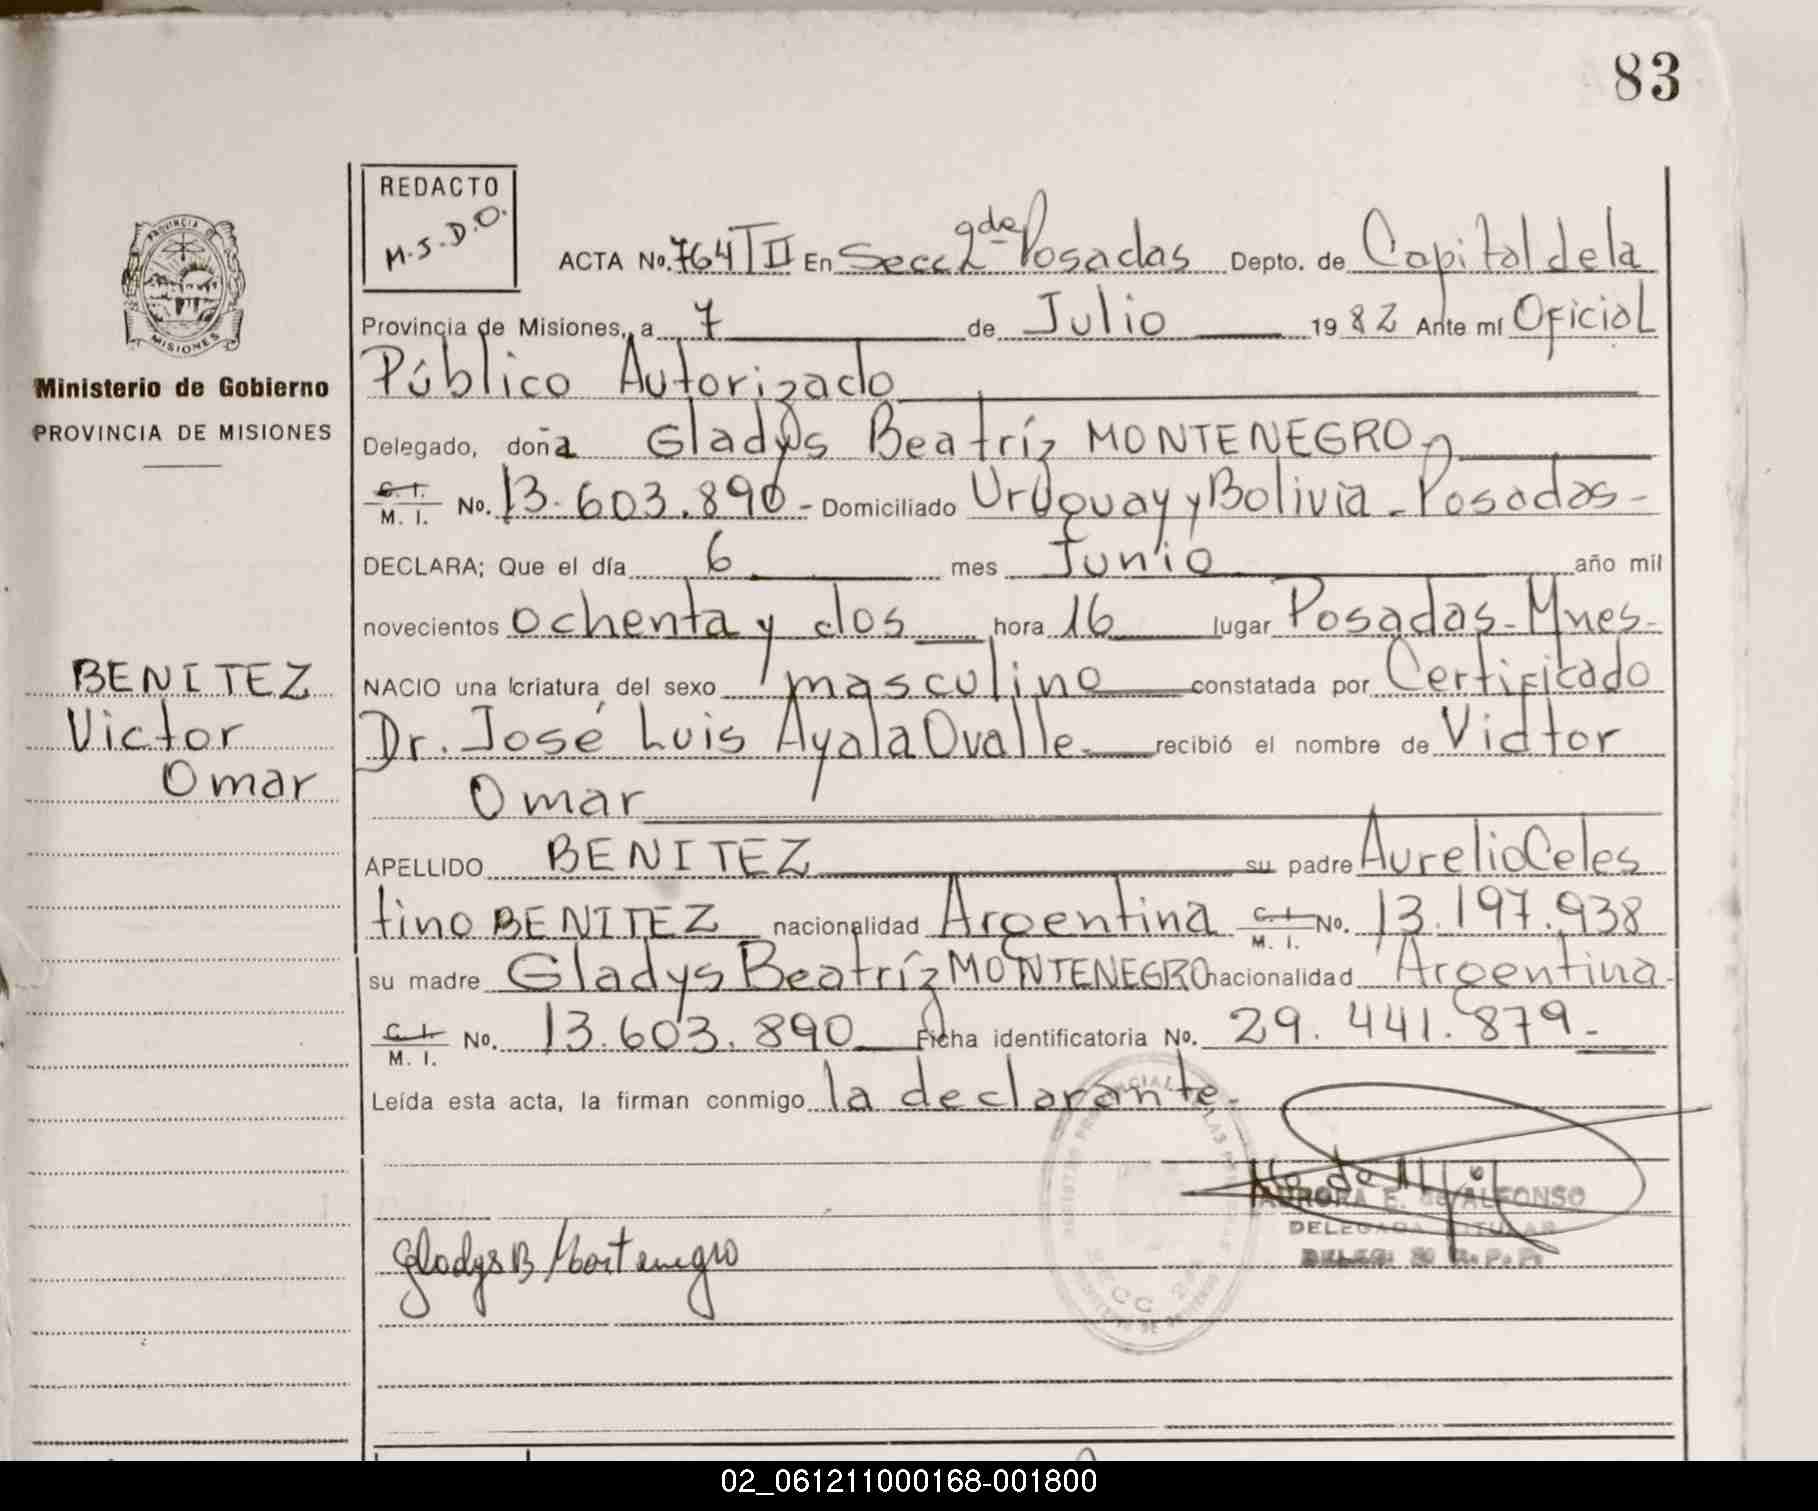 83
REDACTO
M.S.D.O.
ACTA No. 764 T II En Secc 2da Posadas Depto. de Capital de la
Provincia de Misiones, a 7 de Julio 1982 Ante mí Oficial
Público Autorizado
Delegado, doña Gladys Beatríz MONTENEGRO
C. I. M. I. No. 13.603.890 - Domiciliado Uruguay y Bolivia - Posadas -
DECLARA; Que el día 6 mes Junio año mil
novecientos ochenta y dos hora 16 lugar Posadas - Mnes -
NACIO una criatura del sexo masculino constatada por Certificado
Dr. José Luis Ayala Ovalle recibió el nombre de Victor
Omar
APELLIDO BENITEZ su padre Aurelio Celes
tino BENITEZ nacionalidad Argentina C. I. M. I. No. 13.197.938
su madre Gladys Beatríz MONTENEGRO nacionalidad Argentina -
C. I. M. I. No. 13.603.890 Ficha identificatoria No. 29.441.879 -
Leída esta acta, la firman conmigo la declarante -
PROVINCIA DE MISIONES
Ministerio de Gobierno
PROVINCIA DE MISIONES
BENITEZ
Victor
Omar
Gladys B Montenegro
AURORA E. de ALFONSO
DELEGADA TITULAR
SECC 2da
02_061211000168-001800